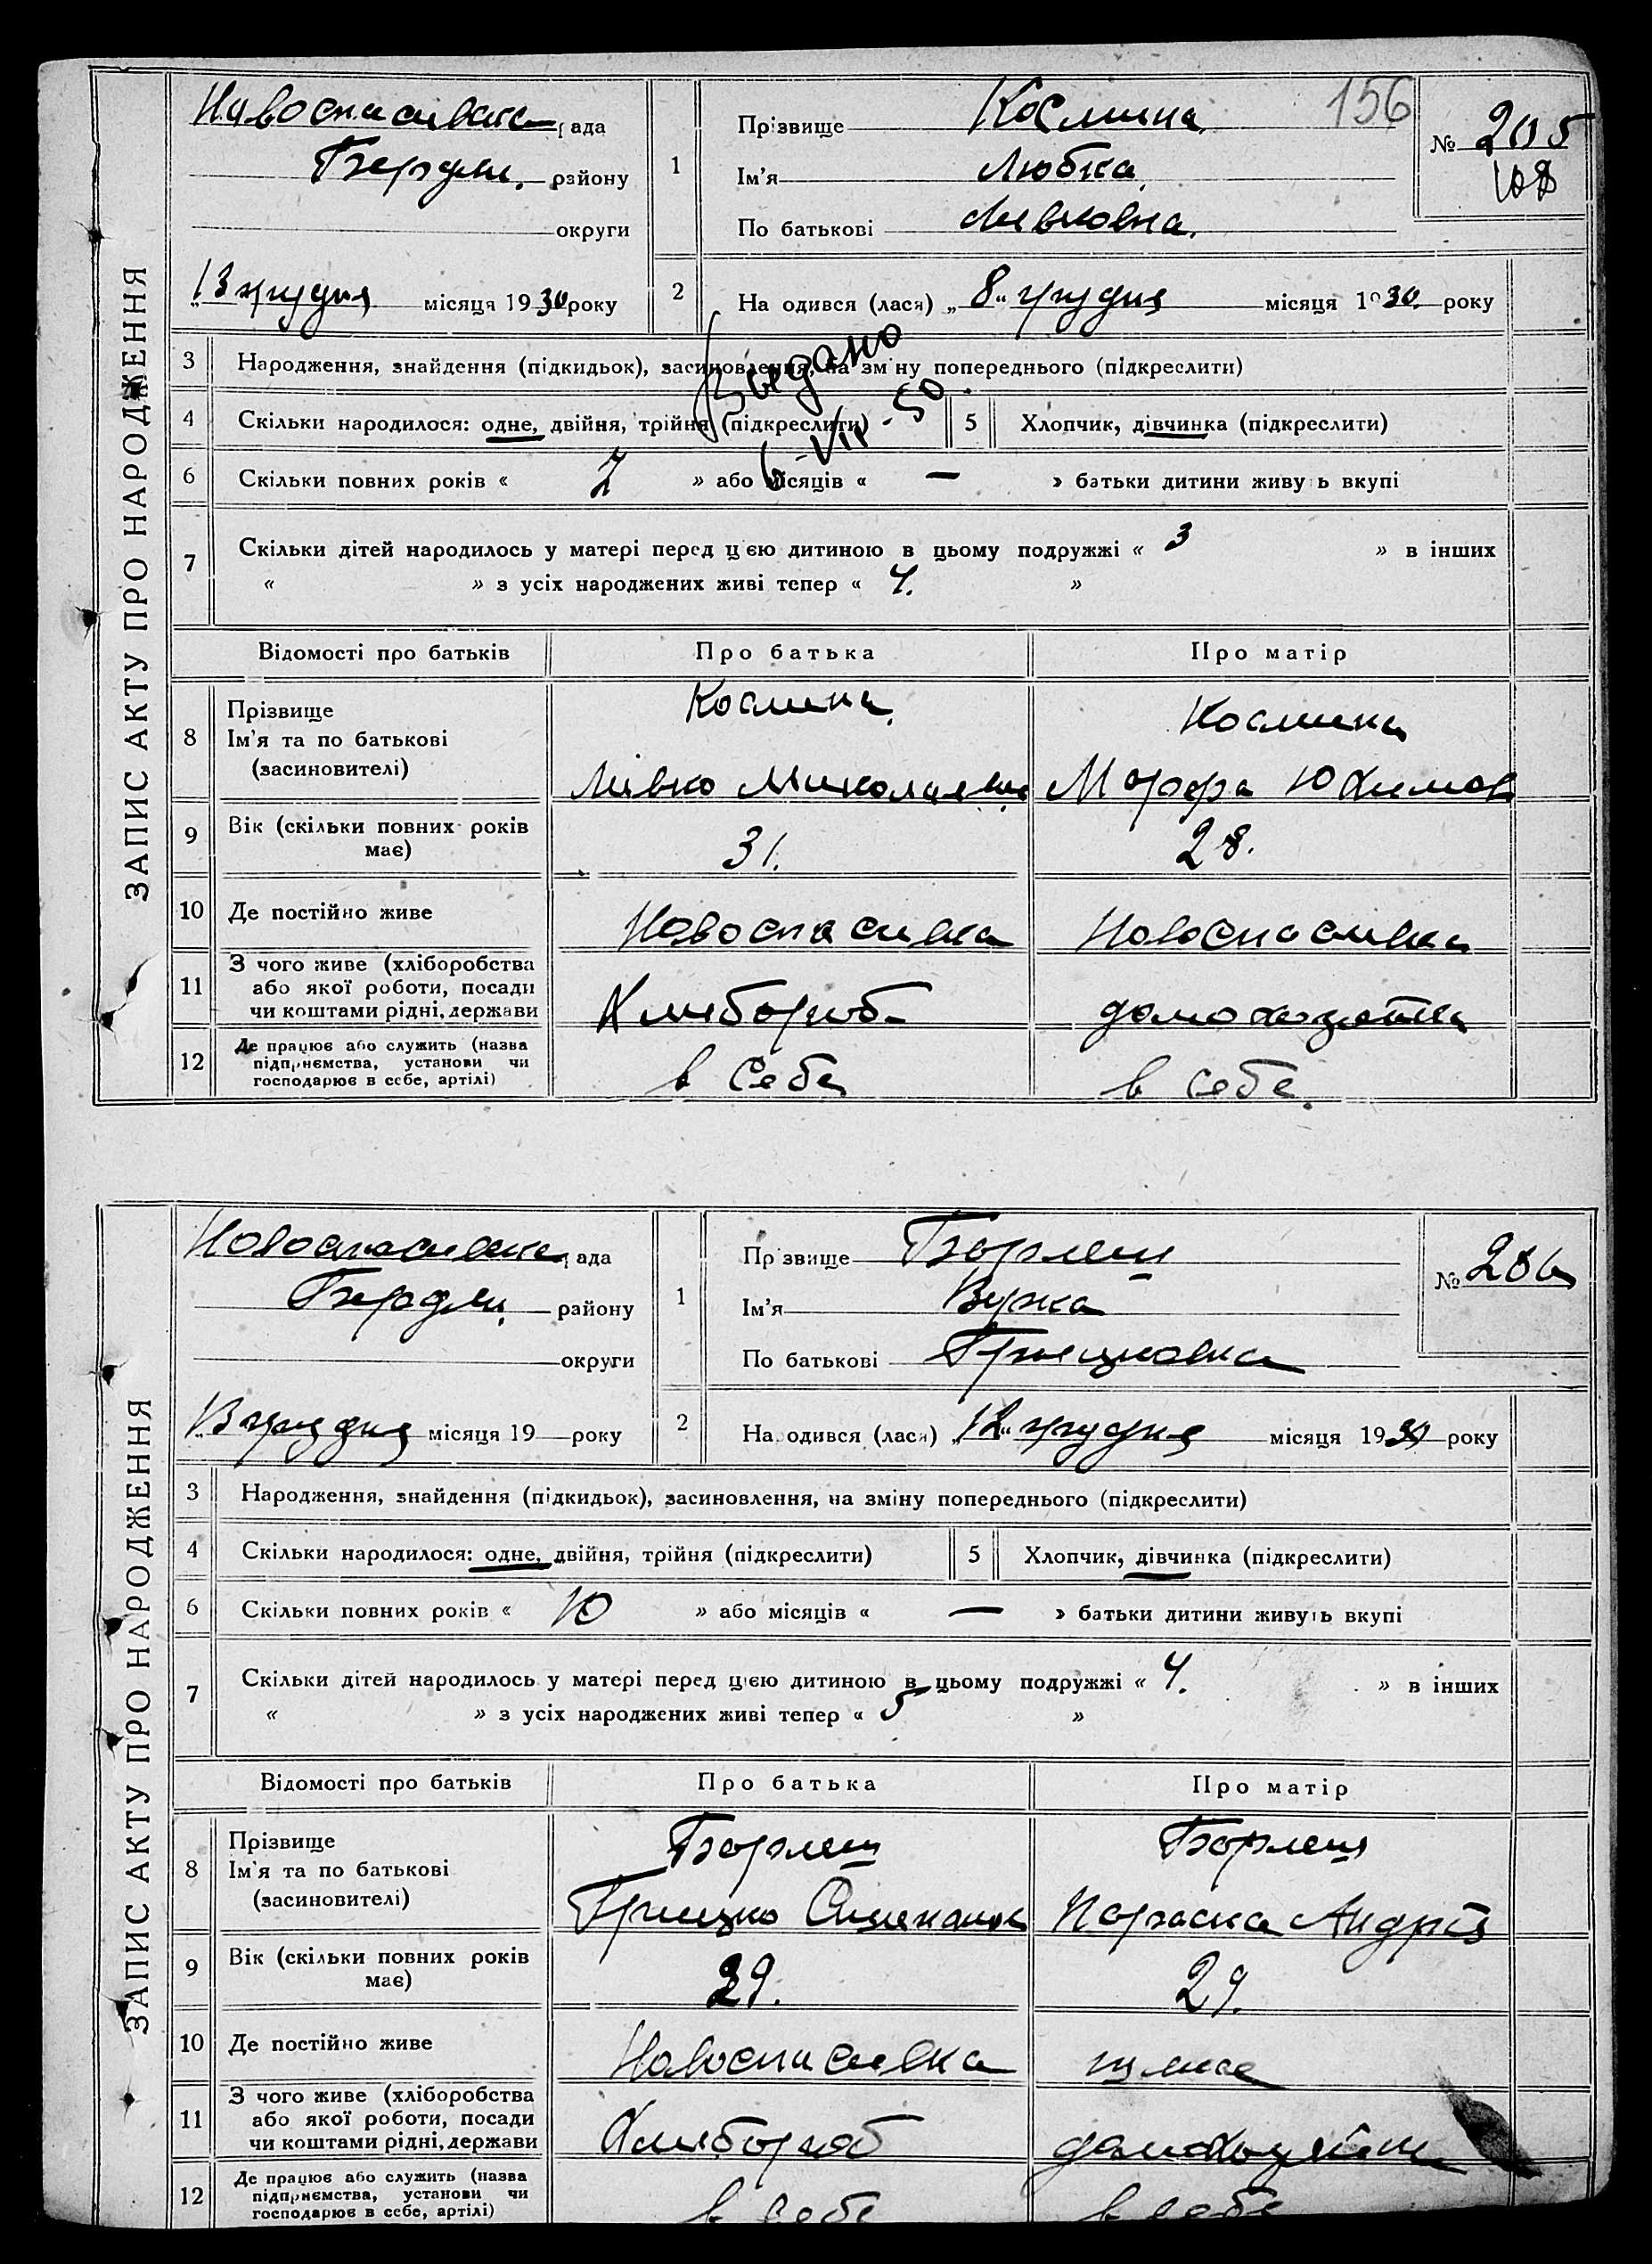 156
ЗАПИС АКТУ ПРО НАРОДЖЕННЯ
рада
Бердян. району
округи
13 грудня місяця 1930 року
1
Прізвище Космина
Ім'я Любка
По батькові Левковна.
№ 205
108
2
Народився (лася) „8" грудня місяця 1930 року
3 Народження, знайдення (підкидьок), засиновлення, на зміну попереднього (підкреслити)
4 Скільки народилося: одне, двійня, трійня (підкреслити) 5 Хлопчик, дівчинка (підкреслити)
6 Скільки повних років « 7 » або місяців « — » батьки дитини живуть вкупі
6-VII-50
7 Скільки дітей народилось у матері перед цією дитиною в цьому подружжі « 3 » в інших
« » з усіх народжених живі тепер « 4. »
Відомості про батьків Про батька Про матір
8 Прізвище
Ім'я та по батькові
(засиновителі)
Космина
Левко Миколаевич
Космина
Марфа Юхимов
9 Вік (скільки повних років має) 31. 28.
10 Де постійно живе Новоспасивка Новоспасивка
11 З чого живе (хліборобства
або якої роботи, посади
чи коштами рідні, держави
Хлибороб домохозяйка
12 Де працює або служить (назва
підприємства, установи чи
господарює в себе, артілі)
в себе в себе.
ЗАПИС АКТУ ПРО НАРОДЖЕННЯ
рада
Бердян. району
округи
13 грудня місяця 19 року
1
Прізвище Борлеш
Ім'я
По батькові Грицковна
№ 206
2
Народився (лася) „12" грудня місяця 1930 року
3 Народження, знайдення (підкидьок), засиновлення, на зміну попереднього (підкреслити)
4 Скільки народилося: одне, двійня, трійня (підкреслити) 5 Хлопчик, дівчинка (підкреслити)
6 Скільки повних років « 10 » або місяців « — » батьки дитини живуть вкупі
7 Скільки дітей народилось у матері перед цією дитиною в цьому подружжі « 4. » в інших
« » з усіх народжених живі тепер « 5 »
Відомості про батьків Про батька Про матір
8 Прізвище
Ім'я та по батькові
(засиновителі)
Борлеш
Грицко
Борлеш
Параска Андрія
9 Вік (скільки повних років має) 29. 29.
10 Де постійно живе Новоспасивка
11 З чого живе (хліборобства
або якої роботи, посади
чи коштами рідні, держави
Хлибороб
12 Де працює або служить (назва
підприємства, установи чи
господарює в себе, артілі)
в себе в себе